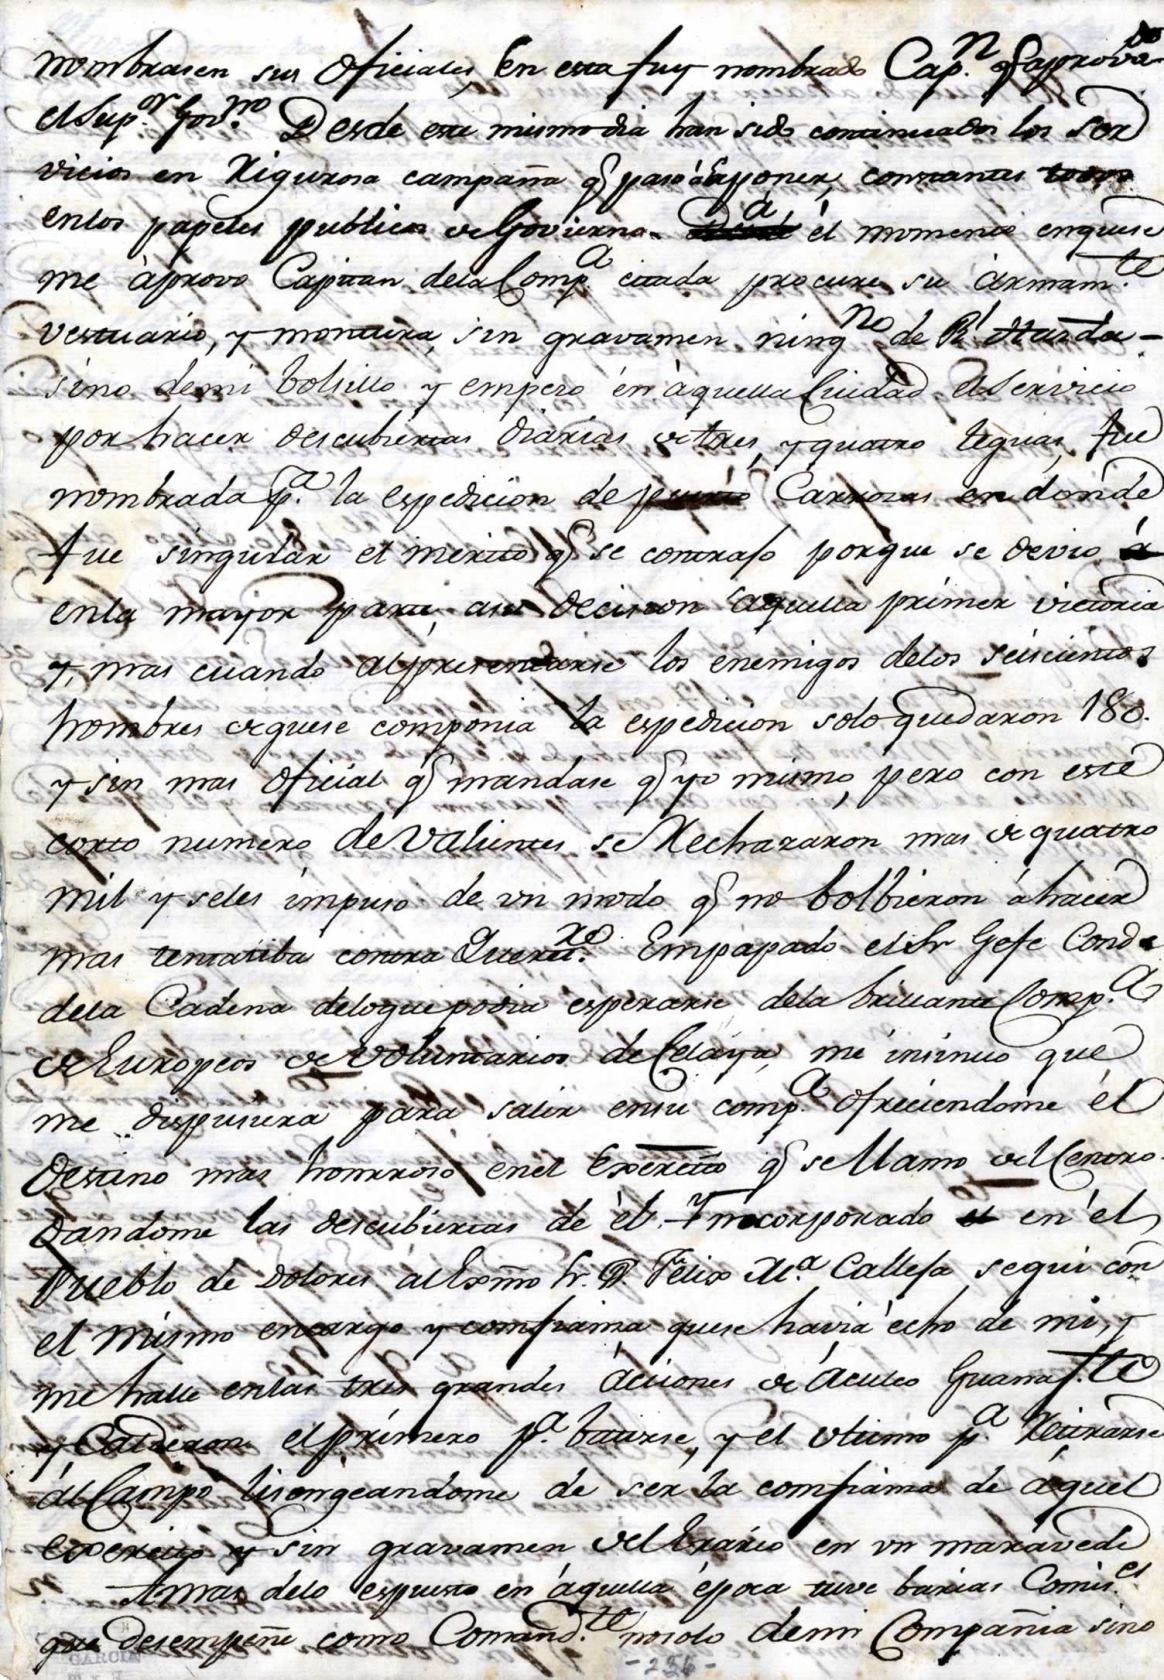 nombrasen sus oficiales, En esta fuy nombrado Cap.n q.e aprovó
el Sup.or Gov.no Desde este mismo dia han sido continuados los ser
vicios en Rigurosa campaña q.e paso á Esponer, constantes todos
enlos papeles publicos de Govierno. á él momento enquese
me àprovo Capitan dela Comp.a citada procure su àrmam.to
vestuario, y montura, sin gravamen ning.no de R.l Hasda-
sino demi bolsillo y empezo en àquella Ciudad el Servicio
por hacer descubiertas diarias de tres, y quatro leguas, fue
nombrada p.a la espedicion de puerto Carrosas en donde
fue singular el merito q.e se contrajo porque se devio á
enla mayor parte, asu decision aquella primer victoria
y, mas cuando alpresentarse los enemigos delos seiscientos
hombres dequese componia la espedicion solo quedaron 180.
y sin mas oficial q.e mandase q.e yo mismo, pero con este
corto numero de valientes se Rechazaron mas de quatro
mil y seles impuso de un modo q.e no bolbieron á hacer
mas tentatiba contra Queret.ro Empapado el Sr Gefe Conde
dela Cadena deloque podia esperarse dela brillante Comp.a
de Europeos de voluntarios de Celaya, me insinuo que
me dispusiera para salir ensu comp.a ofreciendome él
destino mas honrroso enel Exercito q.e se llamo del Centro.
dandome las descubiertas de èl. Yncorporado en él
Pueblo de Dolores al Exmo Sr. D. Felix M.a Calleja segui con
el mismo encargo y comfiansa quese havia echo de mi, y
me halle enlas tres grandes Aciones de Aculco Guanaj.to
y Calderon el primero p.a batirse, y el vltimo p.a Retirarse
ál Campo lisongeandome de ser la comfiansa de áquel
exercito y sin gravamen del Erario en un maravedi
Amas delo espuesto en áquella época tuve barias Comis.es
que desempeñe como Comand.te nosolo demi Compañia sino
-236-
GARCIA